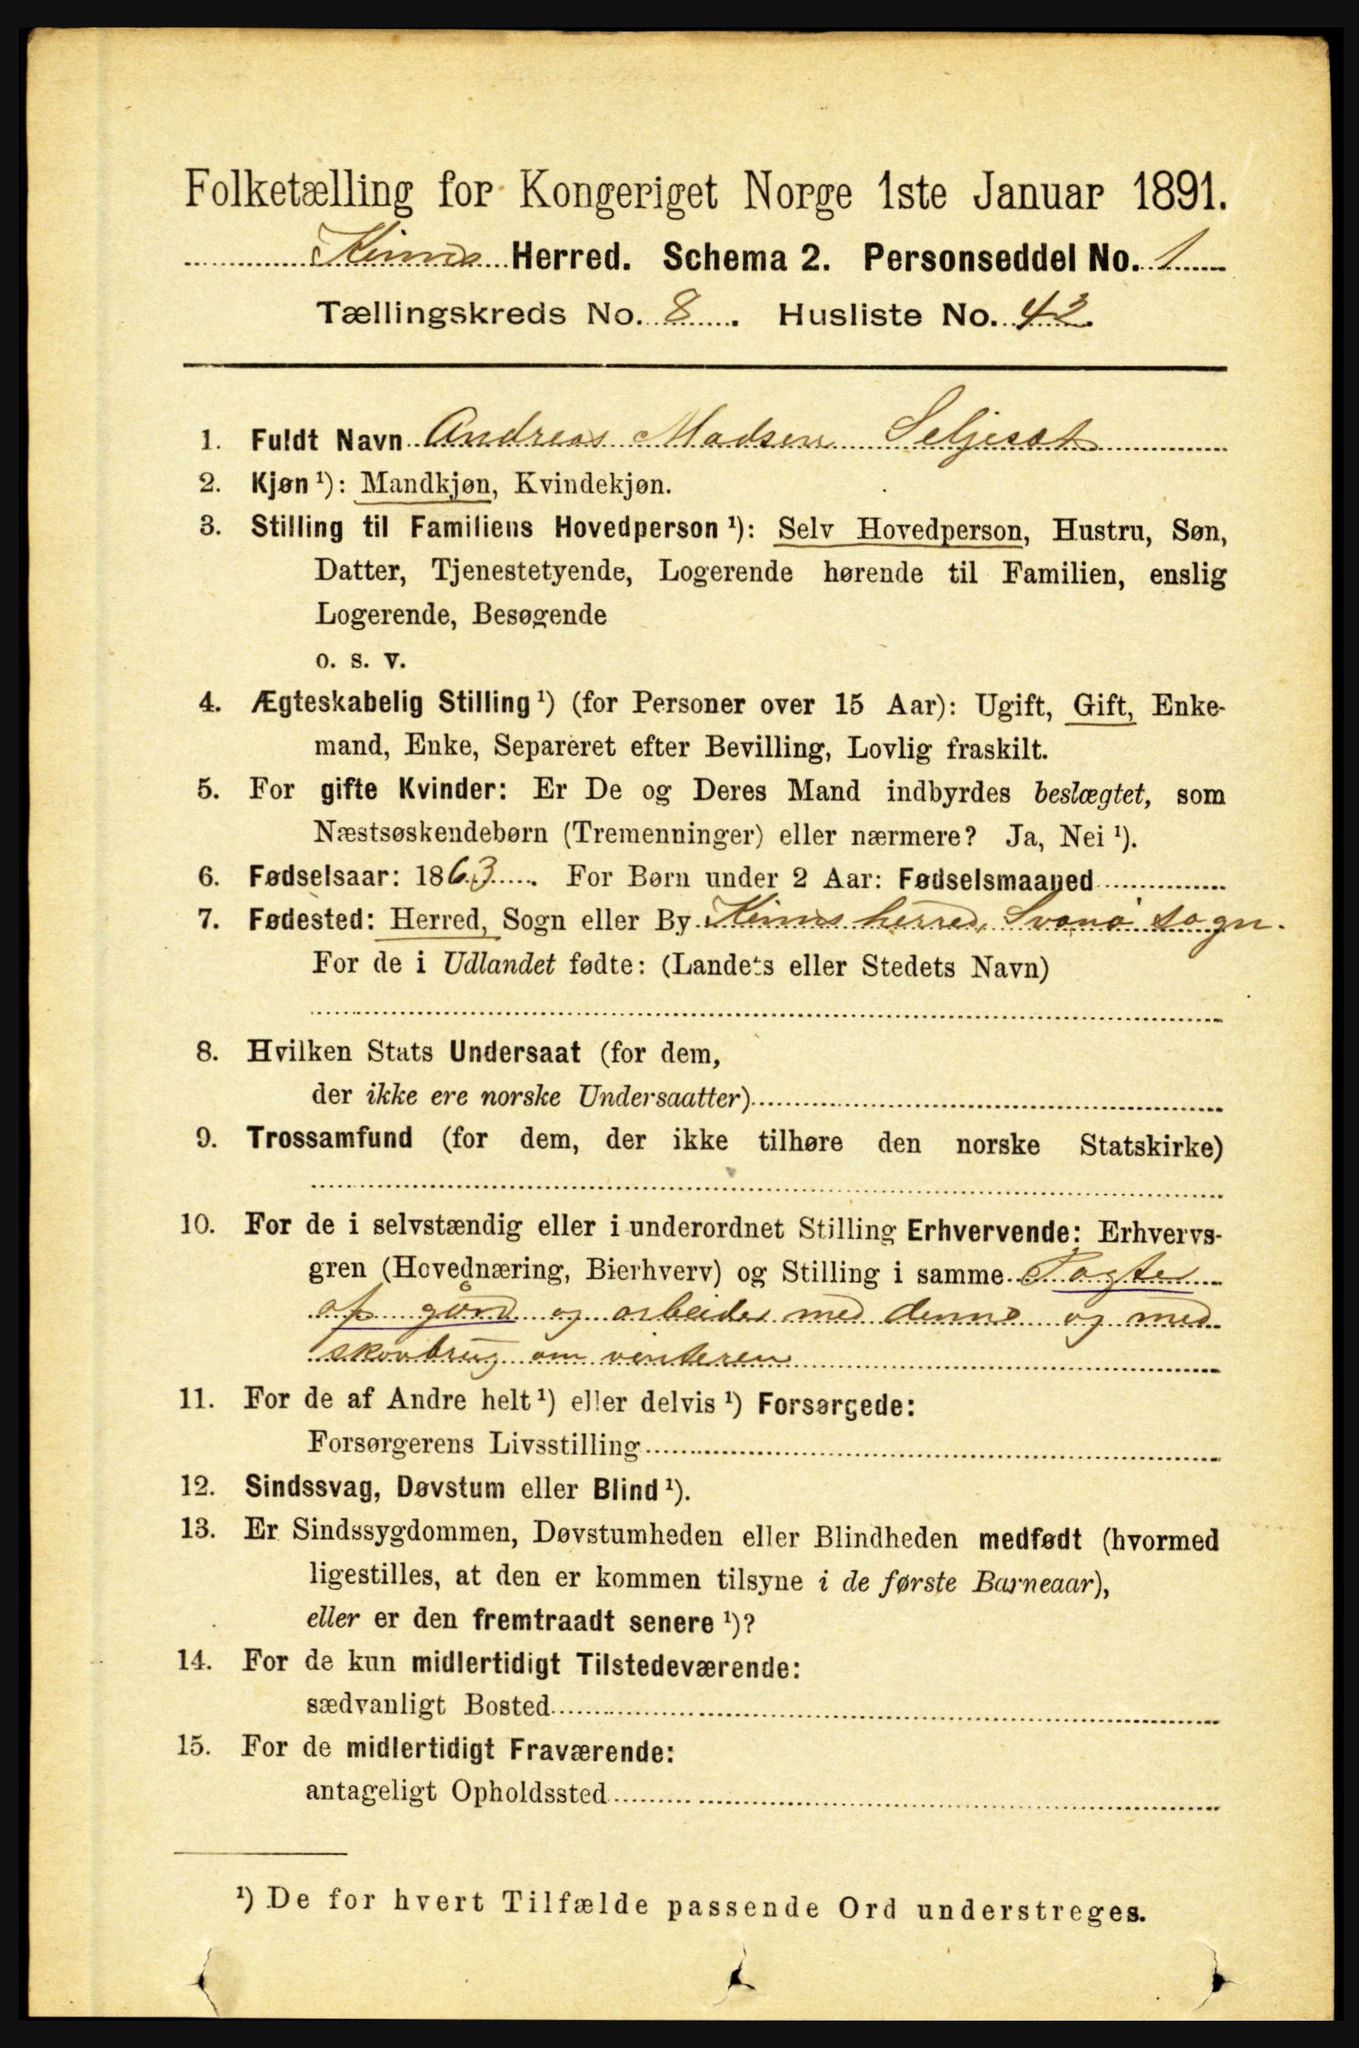 Folketælling for Kongeriget Norge 1ste Januar 1891.
Kinns Herred. Schema 2. Personseddel No. 1
Tællingskreds No. 8. Husliste No. 42.
1. Fuldt Navn Andreas Madsen Seljeset
2. Kjøn ¹): Mandkjøn, Kvindekjøn.
3. Stilling til Familiens Hovedperson ¹): Selv Hovedperson, Hustru, Søn,
Datter, Tjenestetyende, Logerende hørende til Familien, enslig
Logerende, Besøgende
o. s. v.
4. Ægteskabelig Stilling ¹) (for Personer over 15 Aar): Ugift, Gift, Enke-
mand, Enke, Separeret efter Bevilling, Lovlig fraskilt.
5. For gifte Kvinder: Er De og Deres Mand indbyrdes beslægtet, som
Næstsøskendebørn (Tremenninger) eller nærmere? Ja, Nei ¹).
6. Fødselsaar: 1863. For Børn under 2 Aar: Fødselsmaaned
7. Fødested: Herred, Sogn eller By Kinns herred, Svanø sogn.
For de i Udlandet fødte: (Landets eller Stedets Navn)
8. Hvilken Stats Undersaat (for dem,
der ikke ere norske Undersaatter)
9. Trossamfund (for dem, der ikke tilhøre den norske Statskirke)
10. For de i selvstændig eller i underordnet Stilling Erhvervende: Erhvervs-
gren (Hovednæring, Bierhverv) og Stilling i samme Pagter
af gård og arbeider med denne og med
skovbrug om vinteren
11. For de af Andre helt ¹) eller delvis ¹) Forsørgede:
Forsørgerens Livsstilling
12. Sindssvag, Døvstum eller Blind ¹).
13. Er Sindssygdommen, Døvstumheden eller Blindheden medfødt (hvormed
ligestilles, at den er kommen tilsyne i de første Barneaar),
eller er den fremtraadt senere ¹)?
14. For de kun midlertidigt Tilstedeværende:
sædvanligt Bosted
15. For de midlertidigt Fraværende:
antageligt Opholdssted
¹) De for hvert Tilfælde passende Ord understreges.